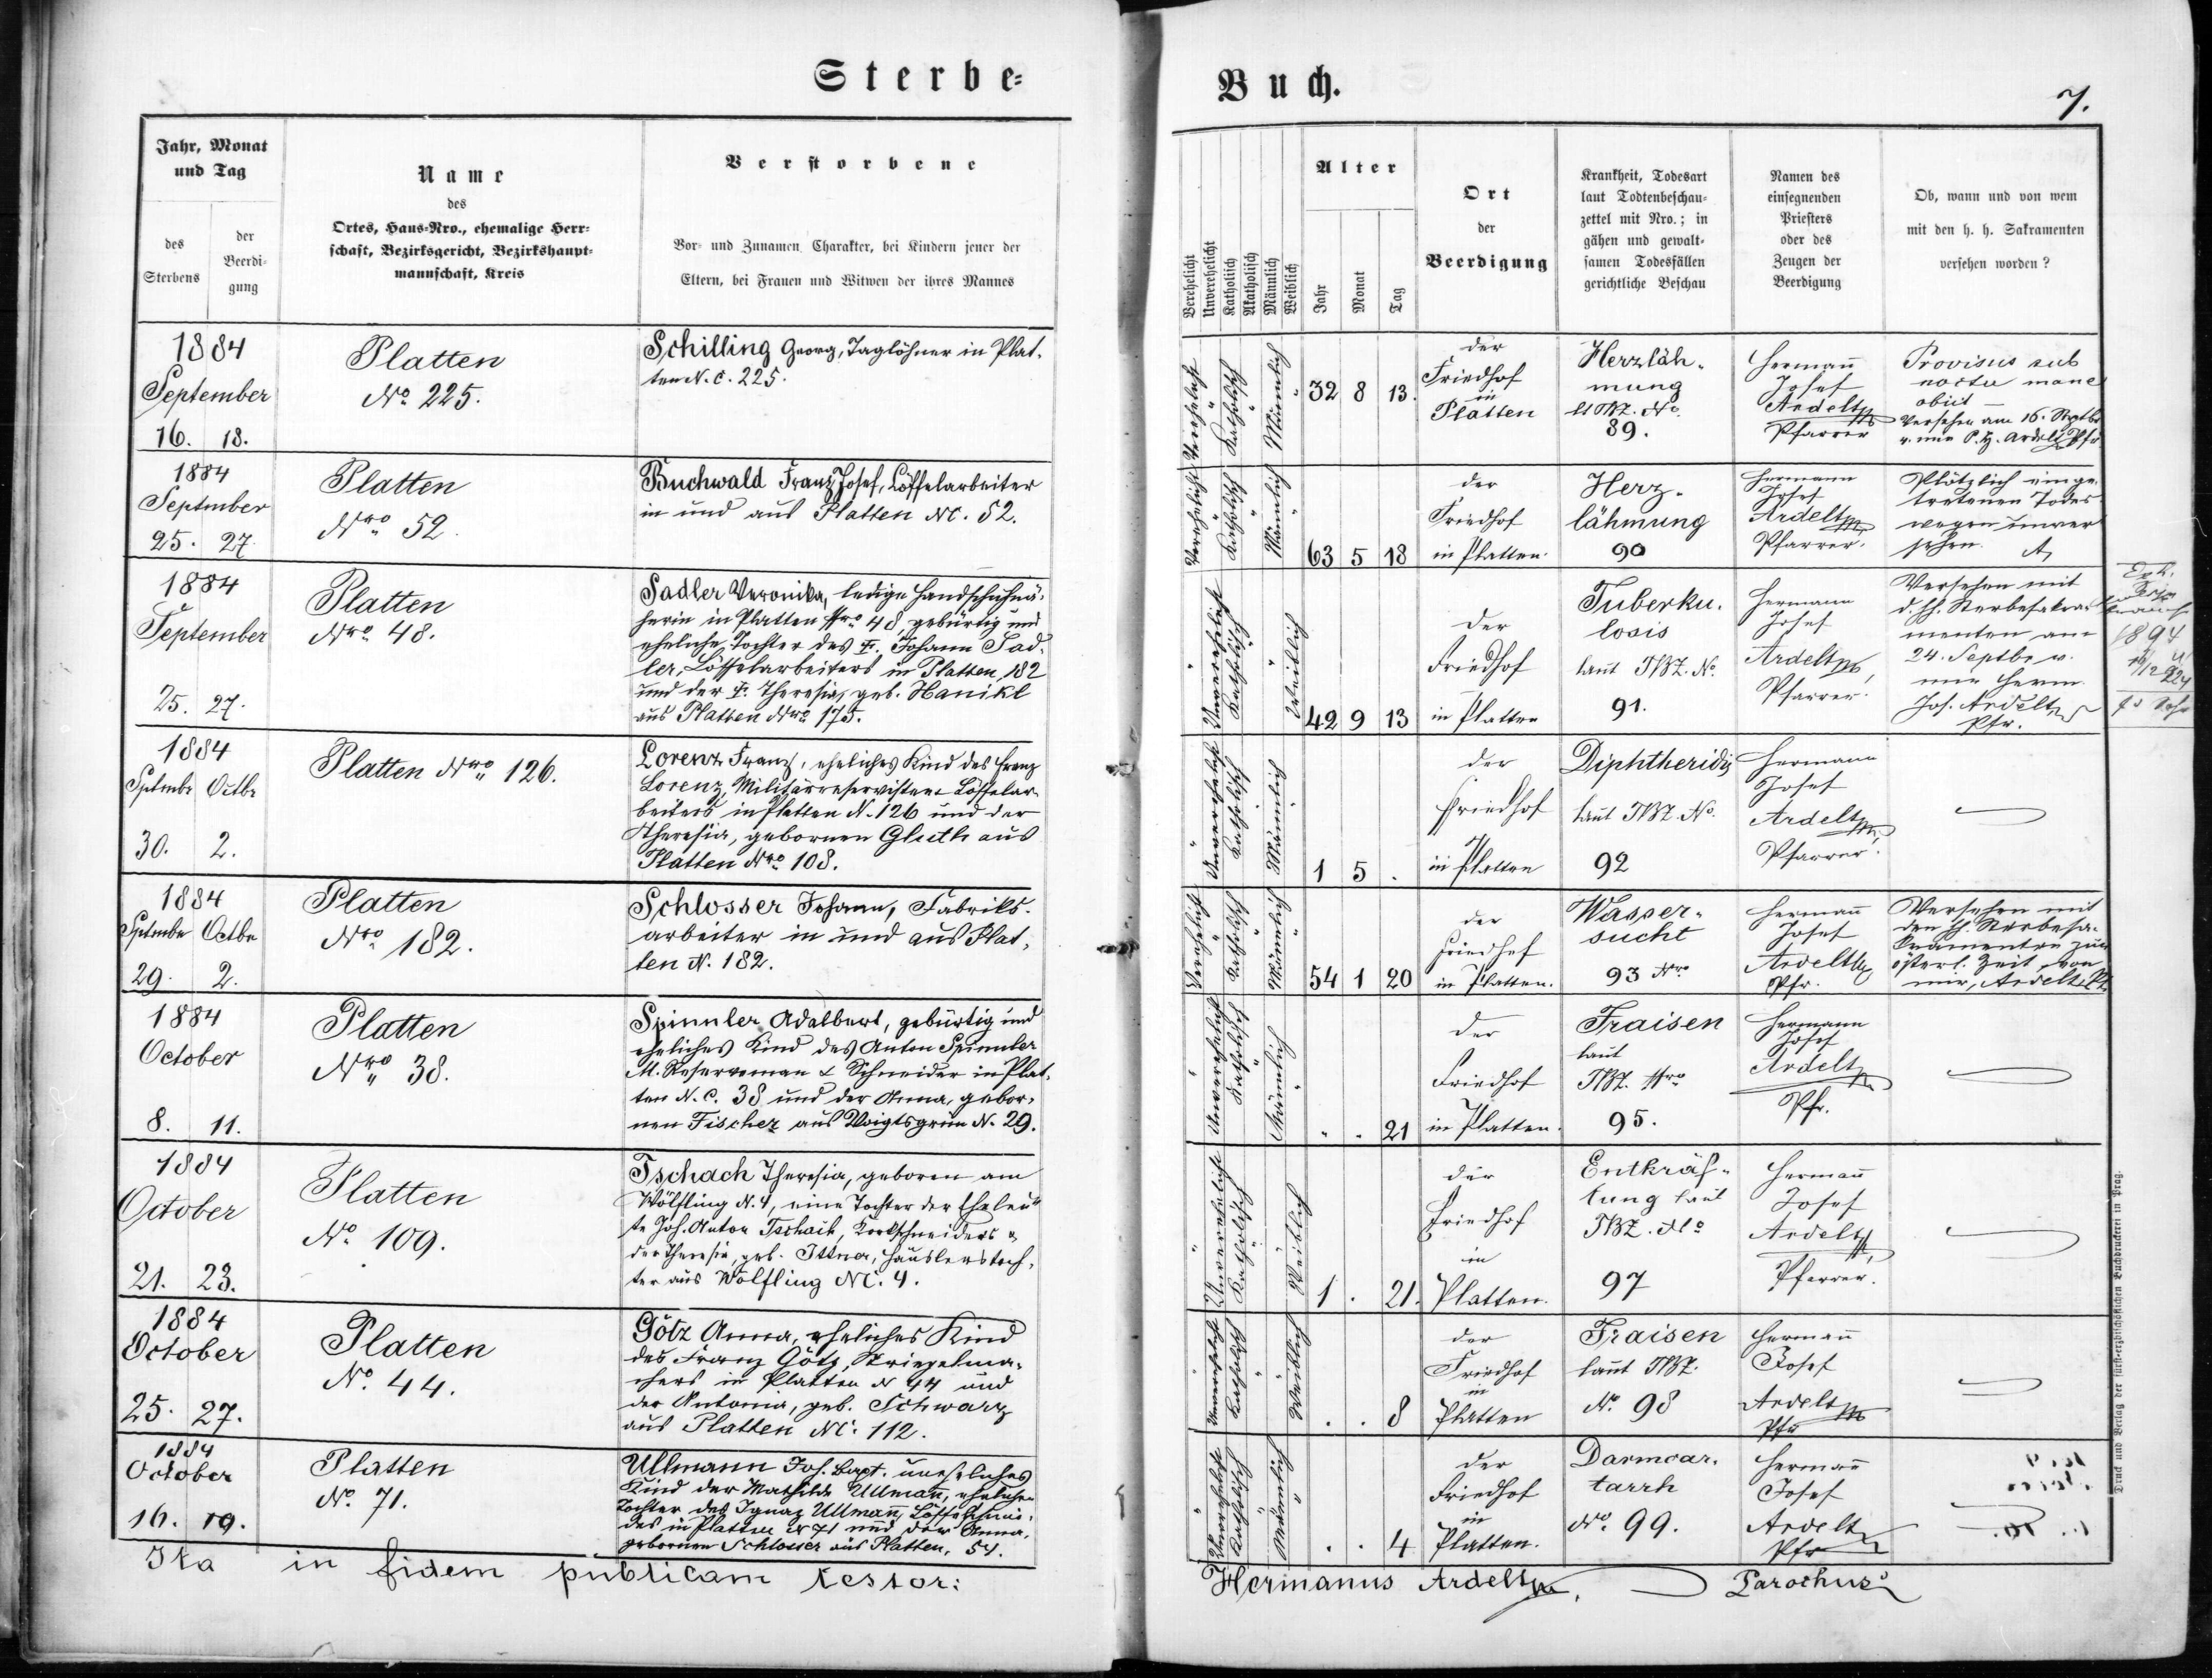 Sterbe=
Jahr, Monat
und Tag
des
Sterbens
der
Beerdi-
gung
Name
des
Ortes, Haus-Nro., ehemalige Herr-
schaft, Bezirksgericht, Bezirkshaupt-
mannschaft, Kreis
Verstorbene
Vor- und Zunamen, Charakter, bei Kindern jener der
Eltern, bei Frauen und Witwen der ihres Mannes
1884
September
16. 18.
Platten
No 225.
Schilling Georg, Taglöhner in Plat-
ten N. C. 225.
1884
September
25. 27.
Platten
Nro 52.
Buchwald Franz Josef, Löffelarbeiter
in und aus Platten NC. 52.
1884
September
25. 27.
Platten
Nro 48.
Sadler Veronika, ledige Handschuhnä-
herin in Platten Nro 48, gebürtig und
eheliche Tochter des Johann Sad-
ler, Löffelarbeiters in Platten, 182
und der Theresia, geb. Hanikl
aus Platten Nro 175.
1884
Sptmbr Octbr
30. 2.
Platten Nro 126.
Lorenz Franz, eheliches Kind des Franz
Lorenz, Militärreservisten Löffelar-
beiters in Platten N. 126 und der
Theresia, gebornen Gluth aus
Platten Nro 108.
1884
Sptmbr Octbr
29. 2.
Platten
Nro 182.
Schlosser Johann, Fabriks-
arbeiter in und aus Plat-
ten N. 182.
1884
October
8. 11.
Platten
Nro 38.
Spinnler Adalbert, gebürtig und
eheliches Kind des Anton Spinnler
M. Reserveman & Schneider in Plat-
ten N. C. 38 und der Anna, gebor-
nen Fischer aus Voigtsgrün N. 29.
1884
October
21. 23.
Platten
No 109.
Tschach Theresia, geboren am
Wölfling N. 4, eine Tochter der Eheleu-
te Joh. Anton Tschach, Korkschneiders &
der Theresia, geb. Ittner, Häuslerstoch-
ter aus Wölfling NC. 4.
1884
October
25. 27.
Platten
No. 44.
Götz Anna, eheliches Kind
des Franz Götz, Striegelma-
chers in Platten N 44 und
der Antonia, geb. Schwarz
aus Platten NC. 112.
1884
October
16. 19.
Platten
No. 71.
Ullmann Jos. Bapt. uneheliches
Kind der Mathilde Ullmann, ehelichen
Tochter des Ignaz Ullmann, Löffelschmie-
des in Platten N 71 und der Anna,
gebornen Schlosser aus Platten, 54.
Ita in fidem publicam testor:
Buch.
7.
Verehelicht
Unverehelicht
Katholisch
Akatholisch
Männlich
Weiblich
Alter
Jahr
Monat
Tag
Ort
der
Beerdigung
Krankheit, Todesart
laut Todtenbeschau-
zettel mit Nro.; in
gähen und gewalt-
samen Todesfällen
gerichtliche Beschau
Namen des
einsegnenden
Priesters
oder des
Zeugen der
Beerdigung
Ob, wann und von wem
mit den h. h. Sakramenten
versehen worden?
Verehelicht
Katholisch
Männlich
32 8 13.
der
Friedhof
in
Platten
Herzläh-
mung
lt TBZ. No.
89.
Hermann
Josef
Ardelt
Pfarrer
Provisus sub
noctu mane
obiit —
Versehen am 16. Septbr
v. mir P. H. Ardelt Pfr
Verehelicht
Katholisch
Männlich
63 5 18
der
Friedhof
in Platten.
Herz-
lähmung
90
Hermann
Josef
Ardelt
Pfarrer.
Plötzlich einge-
tretenen Todes
wegen unver-
sehen. A
Unverehelicht
Katholisch
Weiblich
42 9 13
der
Friedhof
in Platten
Tuberku-
losis
laut TBZ. No.
91.
Hermann
Josef
Ardelt
Pfarrer.
Versehen mit
d. hh. Sterbesakra-
menten am
24. Septbr v.
mir Herm.
Jos. Ardelt
Pfr.
1894
Unverehelicht
Katholisch
Männlich
1 5 .
der
Friedhof
in Platten
Diphtheridis
laut TBZ. No.
92
Hermann
Josef
Ardelt
Pfarrer.
Verehelicht
Katholisch
Männlich
54 1 20
der
Friedhof
in Platten.
Wasser-
sucht
93 Nro
Hermann
Josef
Ardelt
Pfr.
Versehen mit
den hl. Sterbesa-
kramenten zur
österl. Zeit von
mir, Ardelt Pf.
Unverehelicht
Katholisch
Männlich
. . 21
der
Friedhof
in Platten.
Fraisen
laut
TBZ. Nro
95.
Hermann
Josef
Ardelt
Pfr.
Unverehelicht
Katholisch
Weiblich
1 . 21.
der
Friedhof
in
Platten.
Entkräf-
tung laut
TBZ. No
97
Hermann
Josef
Ardelt
Pfarrer.
Unverehelicht
Katholisch
Weiblich
. . 8
der
Friedhof
in
Platten
Fraisen
laut TBZ.
No. 98
Hermann
Josef
Ardelt
Pfr
Unverehelicht
Katholisch
Männlich
. . 4
der
Friedhof
in
Platten.
Darmcar-
tarrh
No. 99.
Hermann
Josef
Ardelt
Pfr
Hermanus Ardelt Parochus
Druck und Verlag der fürst-erzbischöflichen Buchdruckerei in Prag.